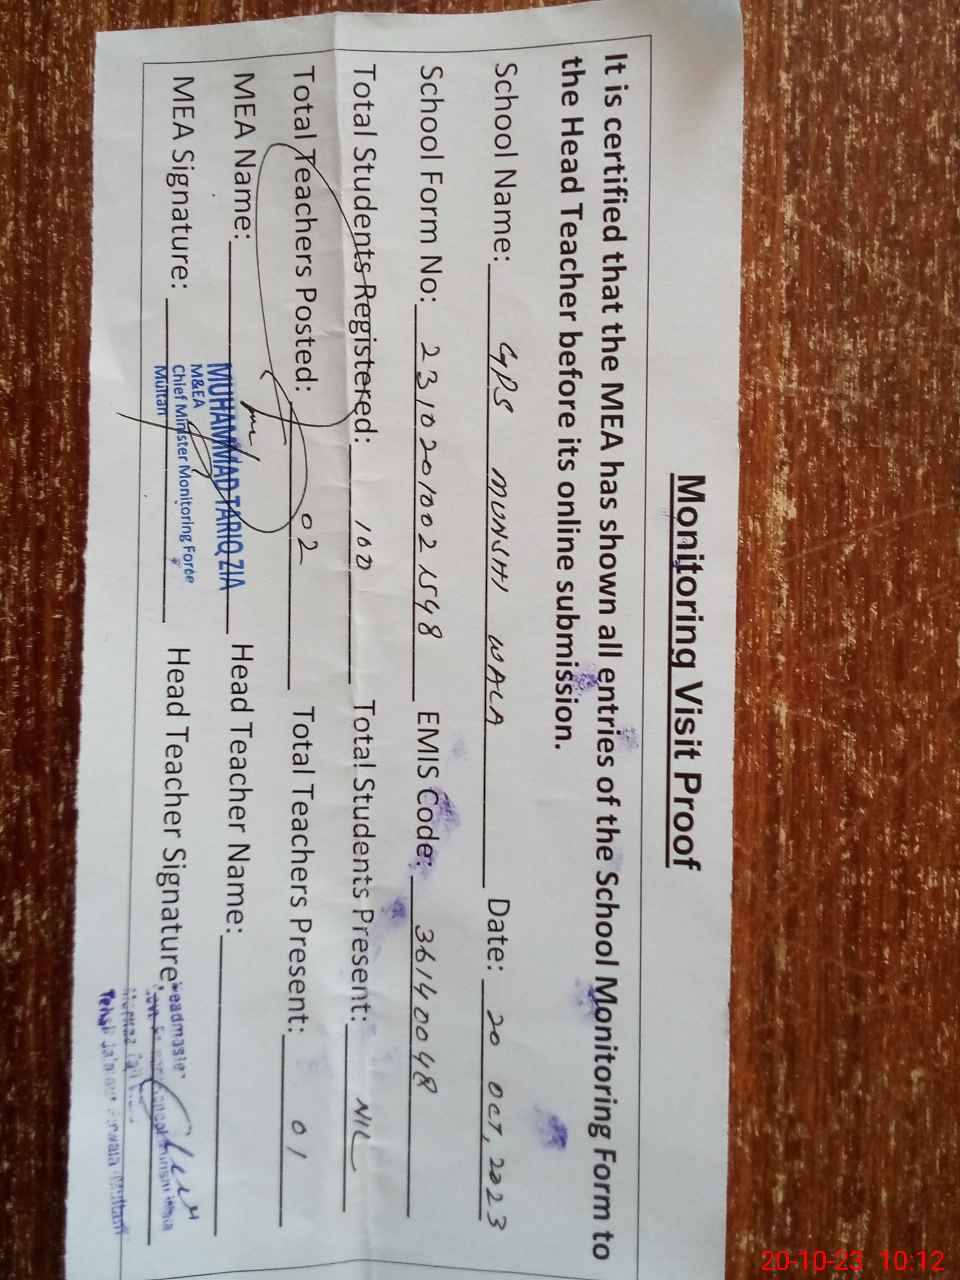 Monitoring Visit Proof
It is certified that the MEA has shown all entries of the School Monitoring Form to
the Head Teacher before its online submission.
School Name: GPS MUNSHI WALA Date: 20 OCT, 2023
School Form No: 23102010021548 EMIS Code: 36140048
Total Students Registered: 100 Total Students Present: NIL
Total Teachers Posted: 02 Total Teachers Present: 01
MEA Name: Head Teacher Name:
MUHAMMAD TARIQ ZIA
M&EA
Chief Minister Monitoring Force
Multan
MEA Signature: Head Teacher Signature:
Headmaster
Tehsil
20-10-23 10:12